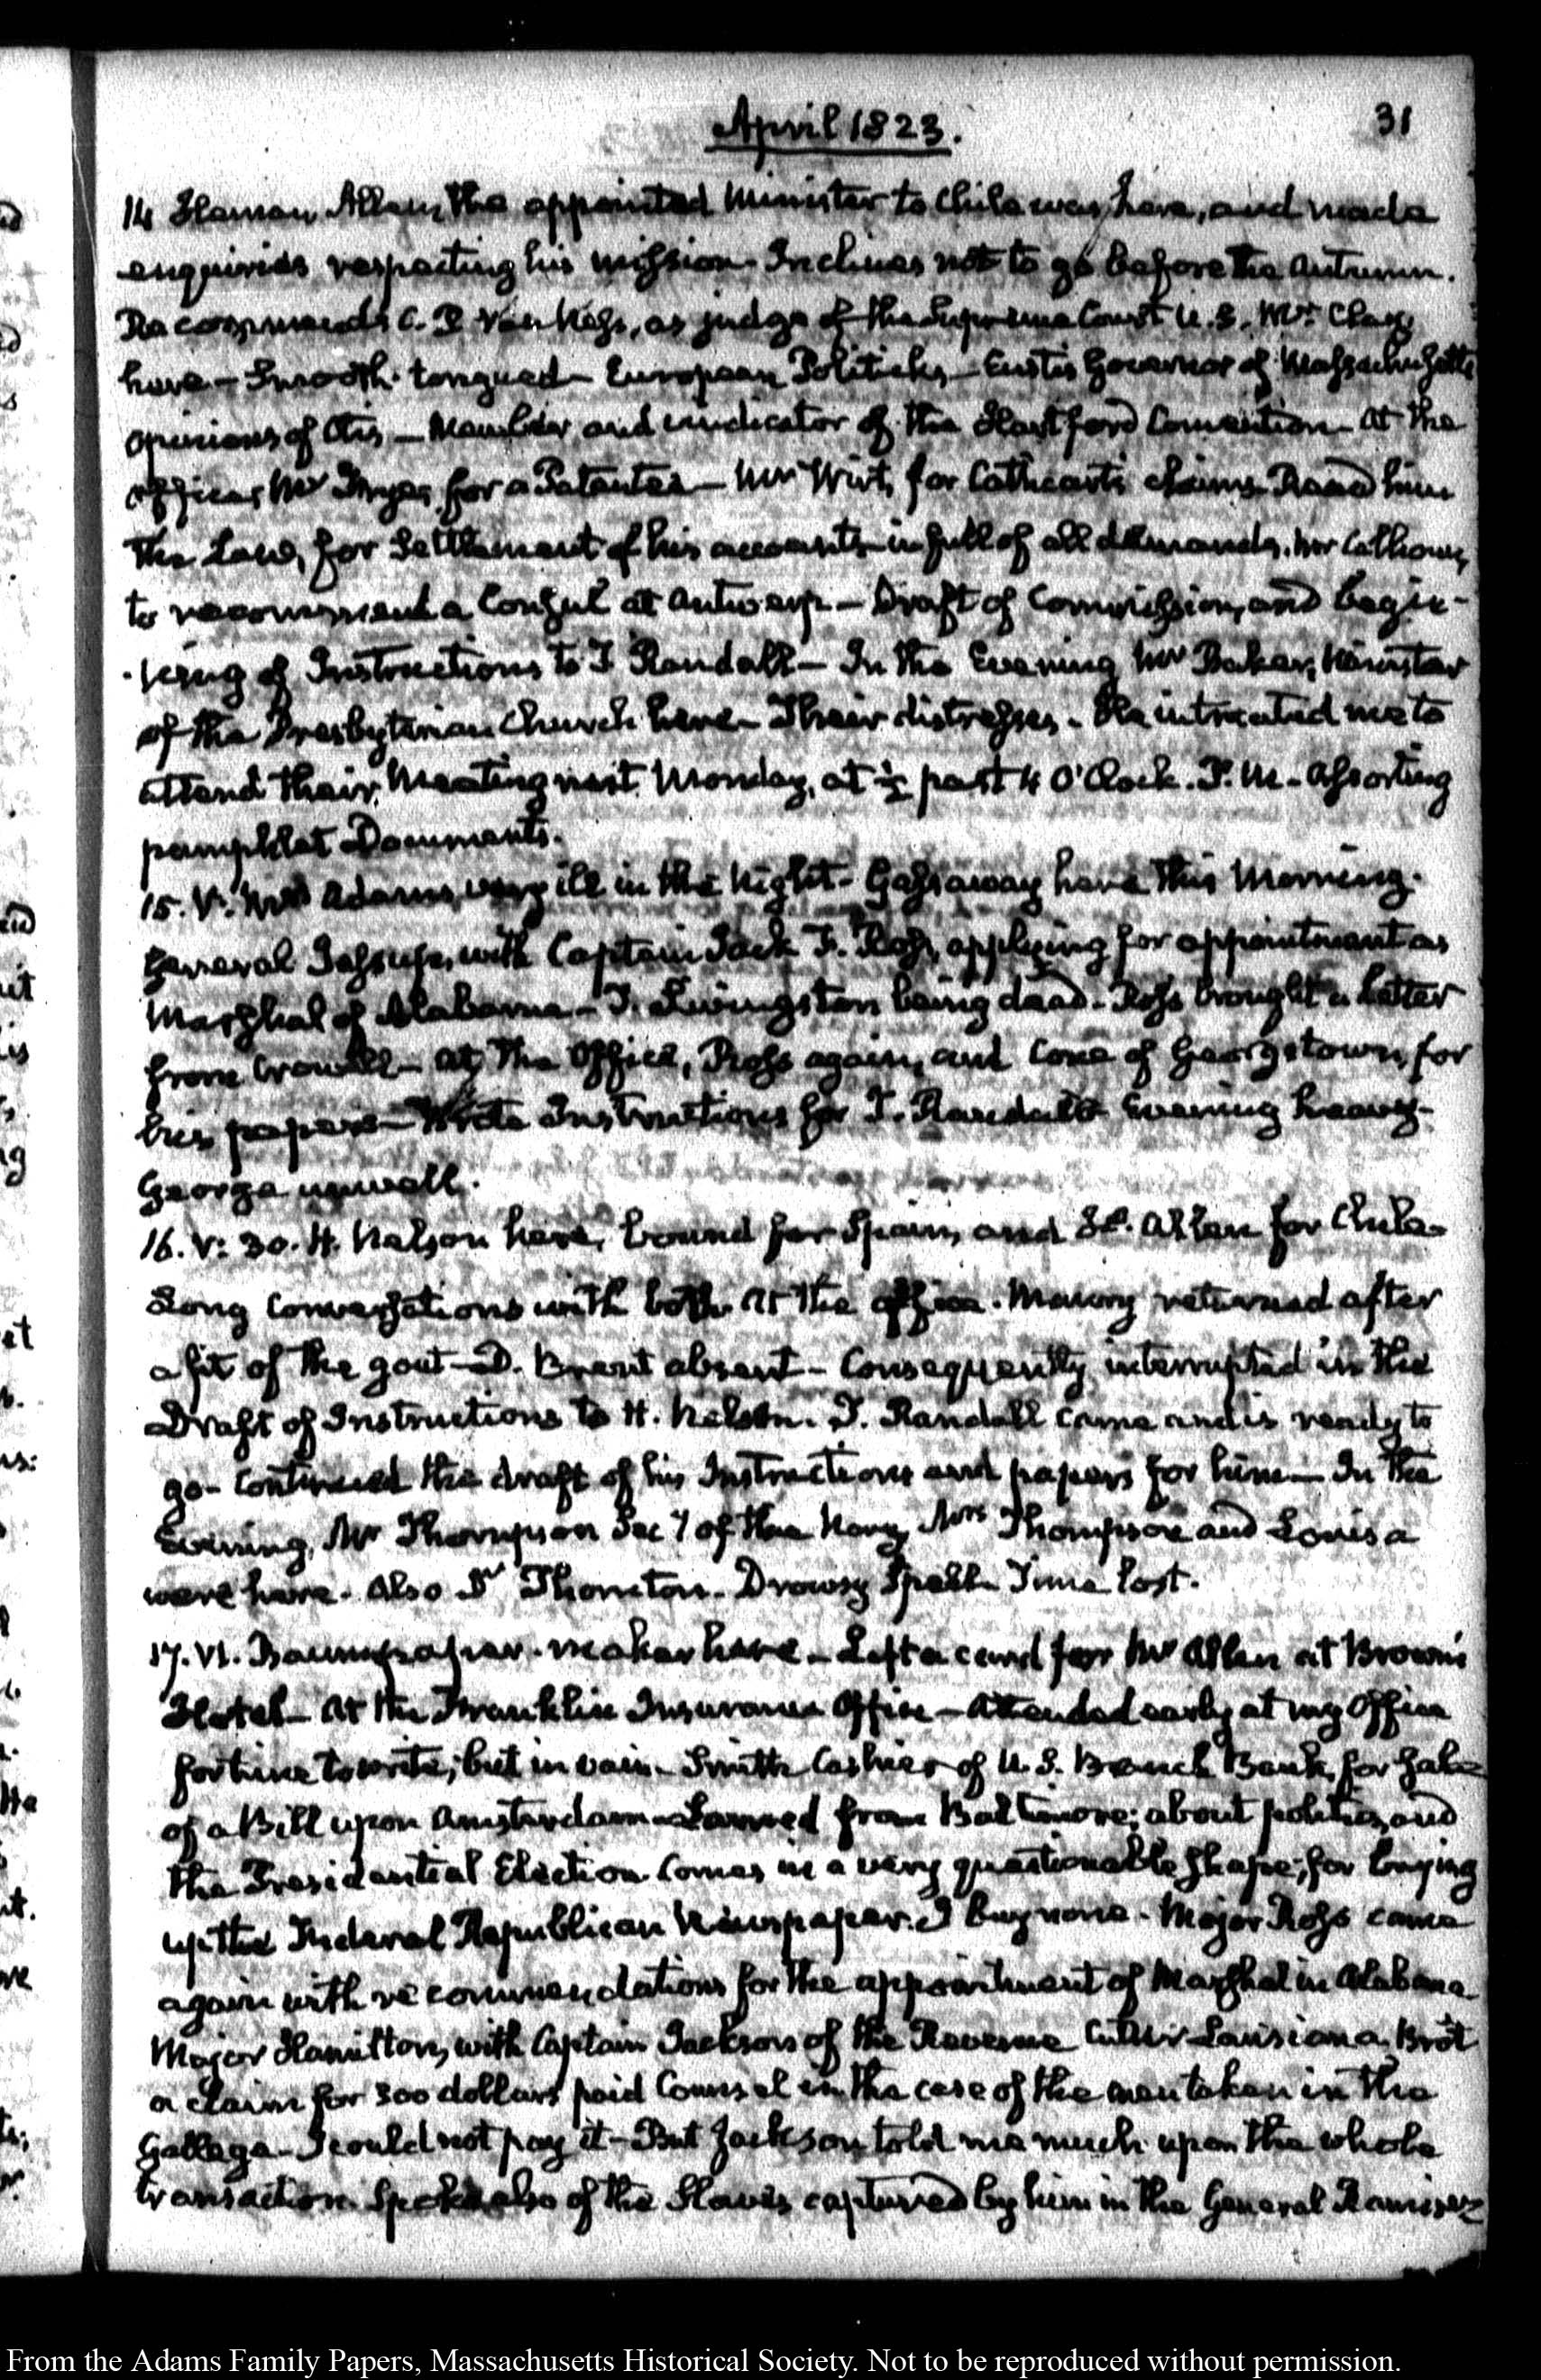 April 1823.
31
14 Heman Allen, the appointed Minister to Chile was here, and made
enquiries respecting his mission. Inclines not to go before the Autumn.
Recommends C. P. Van Ness, as judge of the Supreme Court U.S. Mr. Clay,
here — Smooth-tongued — European Politicks — Eustis Governor of Massachusetts
opinions of Otis — Member and vindicator of the Hartford Convention — At the
office, Mr for a Patentee — Mr Wirt, for Cathcart's claims. Read him
the Law, for Settlement of his accounts in full of all demands. Mr Calhoun,
to recommend a Consul at Antwerp — Draft of Commission, and begin-
-ning of Instructions to T. Randall — In the Evening Mr Baker, Minister
of the Presbyterian Church here — Their distresses. He intreated me to
attend their Meeting next Monday, at ½ past 4 O'Clock. P.M. — Assorting
pamphlet Documents.
15. V: Mrs Adams, very ill in the Night — Gassaway here this Morning.
General Jessup, with Captain Jack F. Ross, applying for appointment as
Marshal of Alabama — T. Livingston being dead — Ross brought a Letter
from Crowell — At the Office, Ross again, and Cone of Georgetown, for
his papers — Wrote Instructions for T. Randall — Evening heavy —
George unwell.
16. V: 30. H. Nelson here, bound for Spain, and H. Allen for Chile —
Long Conversations with both. At the office. Maury returned after
a fit of the gout — D. Brent absent — Consequently interrupted in the
Draft of Instructions to H. Nelson. T. Randall came and is ready to
go — Continued the draft of his Instructions and papers for him — In the
Evening, Mr Thompson Secy of the Navy, Mrs Thompson and Louisa
were here. Also Dr Thornton. Drowsy Spell. Time lost.
17. VI. paper-maker here — Left a card for Mr Allen at Brown's
Hotel — At the Franklin Insurance Office — Attended early at my Office
for time to write; but in vain. Smith Cashier of U.S. Branch Bank, for Sale
of a Bill upon Amsterdam — from Baltimore; about politics, and
the Presidential Election. Comes in a very questionable shape; for buying
up the Federal Republican Newspaper. I buy none. Major Ross came
again with recommendations for the appointment of Marshal in Alabama
Major Hamilton, with Captain Jackson of the Revenue Cutter Louisiana, Brot
a claim for 300 dollars paid Counsel in the case of the men taken in the
Gallega — I could not pay it — But Jackson told me much upon the whole
transaction. Spoke also of the Slaves captured by him in the General Ramirez
From the Adams Family Papers, Massachusetts Historical Society. Not to be reproduced without permission.